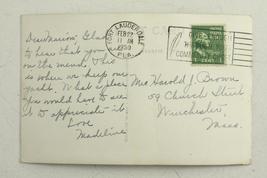 Dear Marion: Glad
to hear that you are
on the mend. This
is where we keep our
yacht. What a place
You would have to see
it to appreciate it.
Love
Madeline
FORT LAUDERDALE
FEB 27
11 AM
1950
FLA.
1 CENT
Mrs Harold J. Brown
59 Church Street
Winchester,
Mass.